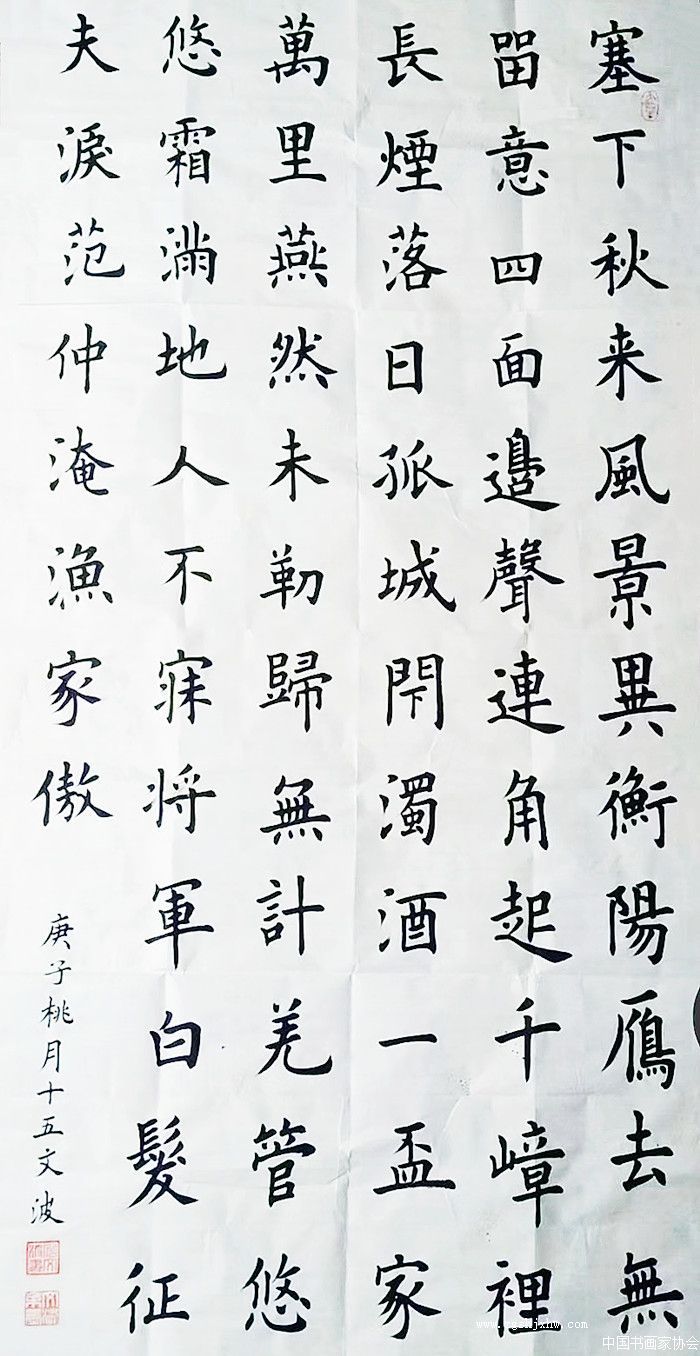 塞下秋来風景異衡陽雁去無
畱意四面邊聲連角起千嶂裡
長煙落日孤城閇濁酒一盃家
萬里燕然未勒歸無計羌管悠
悠霜滿地人不寐将軍白髮征
夫淚范仲淹漁家傲
庚子桃月十五文波
中国书画家协会